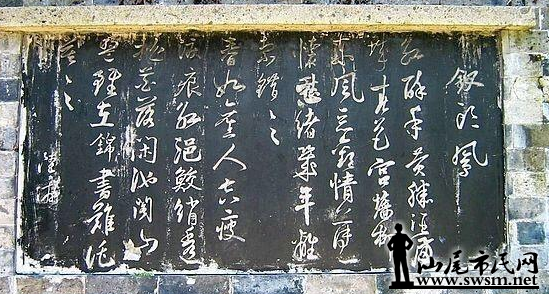 釵頭鳳
紅酥手黃縢酒滿
城春色宮墻柳
東風惡歡情薄一
懷愁緒幾年離
索錯〻
春如舊人空瘦
淚痕紅浥鮫綃透
桃花落閒池閣山
盟雖在錦書難託
莫〻
山尾市民网
www.swsm.net